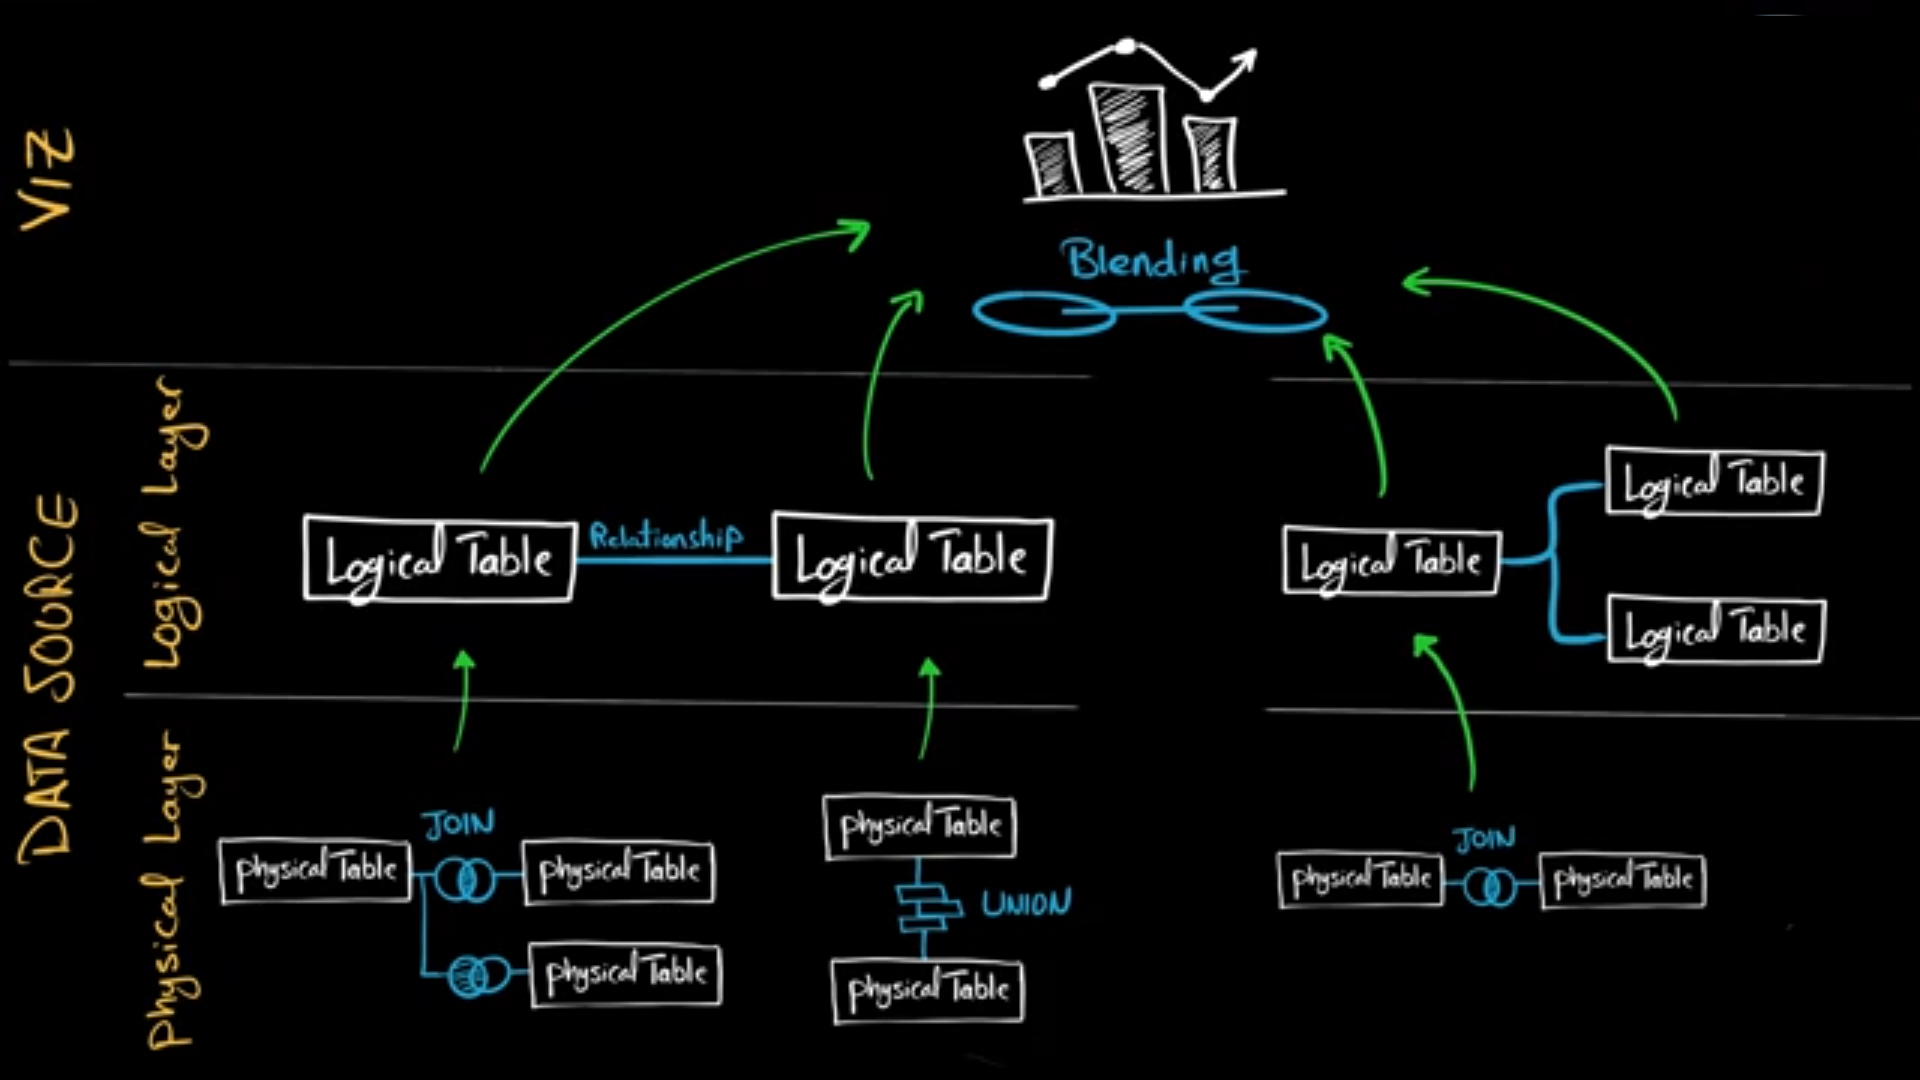 VIZ
Blending
DATA SOURCE
Logical Layer
Logical Table
Relationship
Logical Table
Logical Table
Logical Table
Logical Table
Physical Layer
JOIN
physical Table
physical Table
physical Table
physical Table
UNION
physical Table
JOIN
physical Table
physical Table